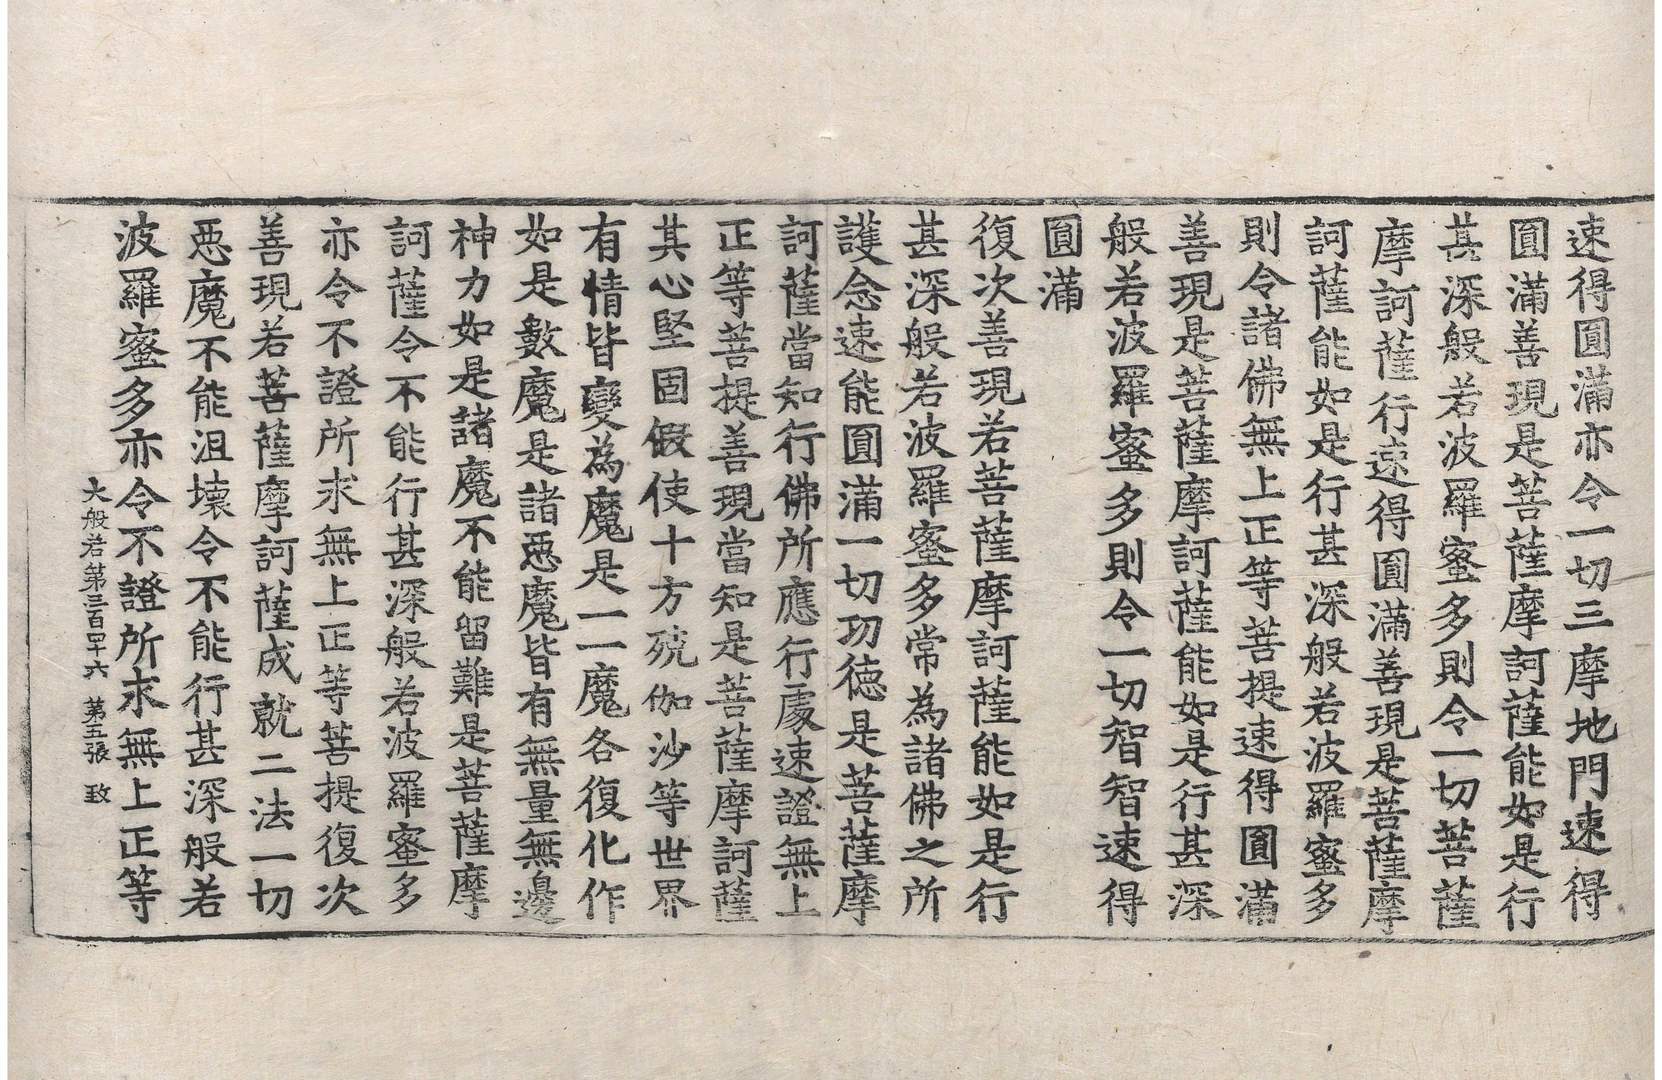 速得圓滿亦令一切三摩地門速得
圓滿善現是菩薩摩訶薩能如是行
甚深般若波羅蜜多則令一切菩薩
摩訶薩行速得圓滿善現是菩薩摩
訶薩能如是行甚深般若波羅蜜多
則令諸佛無上正等菩提速得圓滿
善現是菩薩摩訶薩能如是行甚深
般若波羅蜜多則令一切智智速得
圓滿
復次善現若菩薩摩訶薩能如是行
甚深般若波羅蜜多常為諸佛之所
護念速能圓滿一切功德是菩薩摩
訶薩當知行佛所應行處速證無上
正等菩提善現當知是菩薩摩訶薩
其心堅固假使十方殑伽沙等世界
有情皆變為魔是一一魔各復化作
如是數魔是諸惡魔皆有無量無邊
神力如是諸魔不能留難是菩薩摩
訶薩令不能行甚深般若波羅蜜多
亦令不證所求無上正等菩提復次
善現若菩薩摩訶薩成就二法一切
惡魔不能沮壞令不能行甚深般若
波羅蜜多亦令不證所求無上正等
大般若第三百四十六 第五張 致